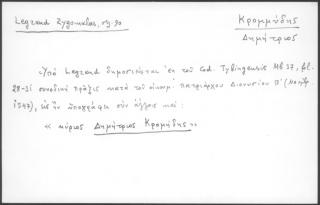 Legrand Ζυγομαλας, 89-90
Κρομμύδης
Δημήτριος
Ὑπὸ Legrand δημοσιεύεται ἐκ τοῦ Cod. Tybingensis Mb 37, fol.
28-31 συνοδικὴ πρᾶξις κατὰ τοῦ οἰκουμ. Πατριάρχου Διονυσίου Β΄
1547), ἐς ἣν ὑπογράφει σὺν ἄλλοις καὶ:
« κύριος Δημήτριος Κρομύδης »